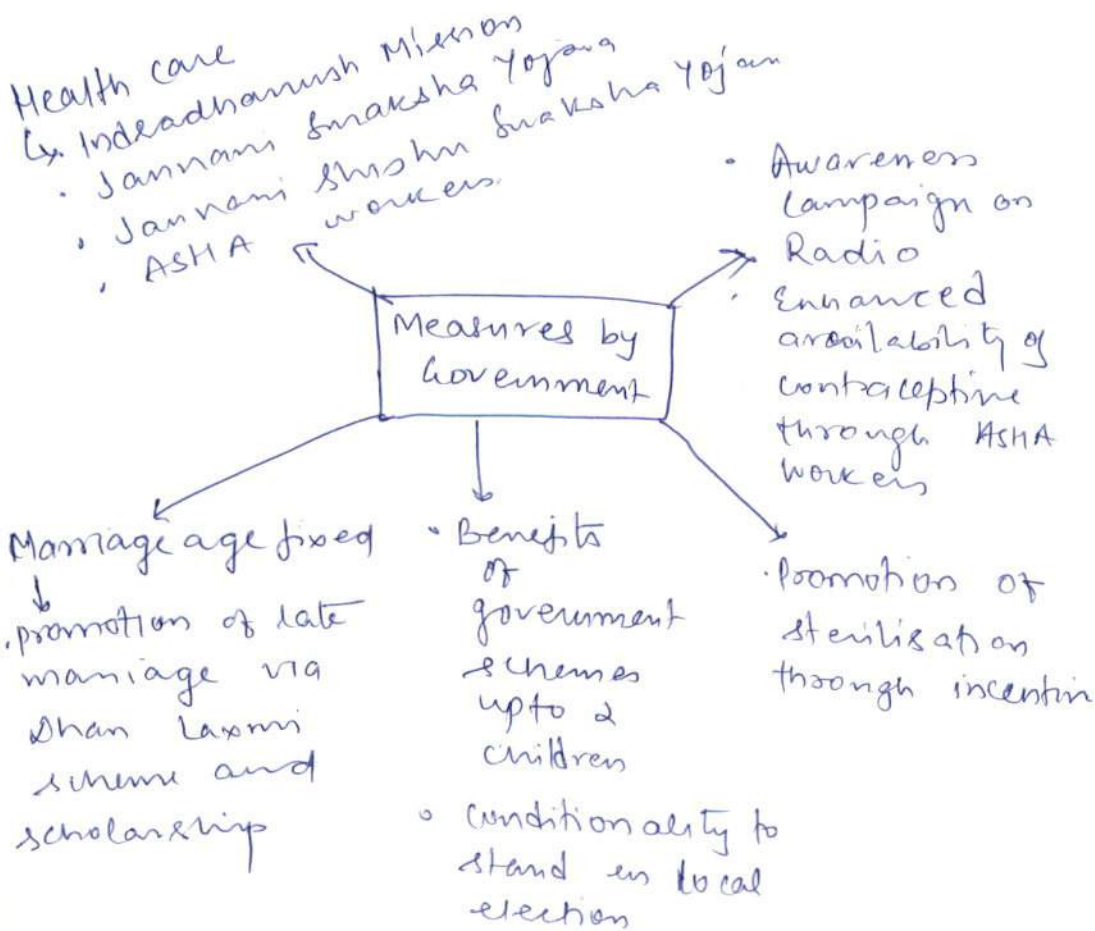 Health care
↳ Indradhanush Mission
· Jannani Suraksha Yojana
· Jannani Shishu Suraksha Yojan
· ASHA workers.
· Awareness
Campaign on
Radio
· Enhanced
availability of
contraceptive
through ASHA
workers
Measures by
Government
Marriage age fixed
· promotion of late
marriage via
Dhan Laxmi
scheme and
scholarship
· Benefits
of
government
schemes
upto 2
children
· Conditionality to
stand in local
election
· Promotion of
sterilisation
through incentiv